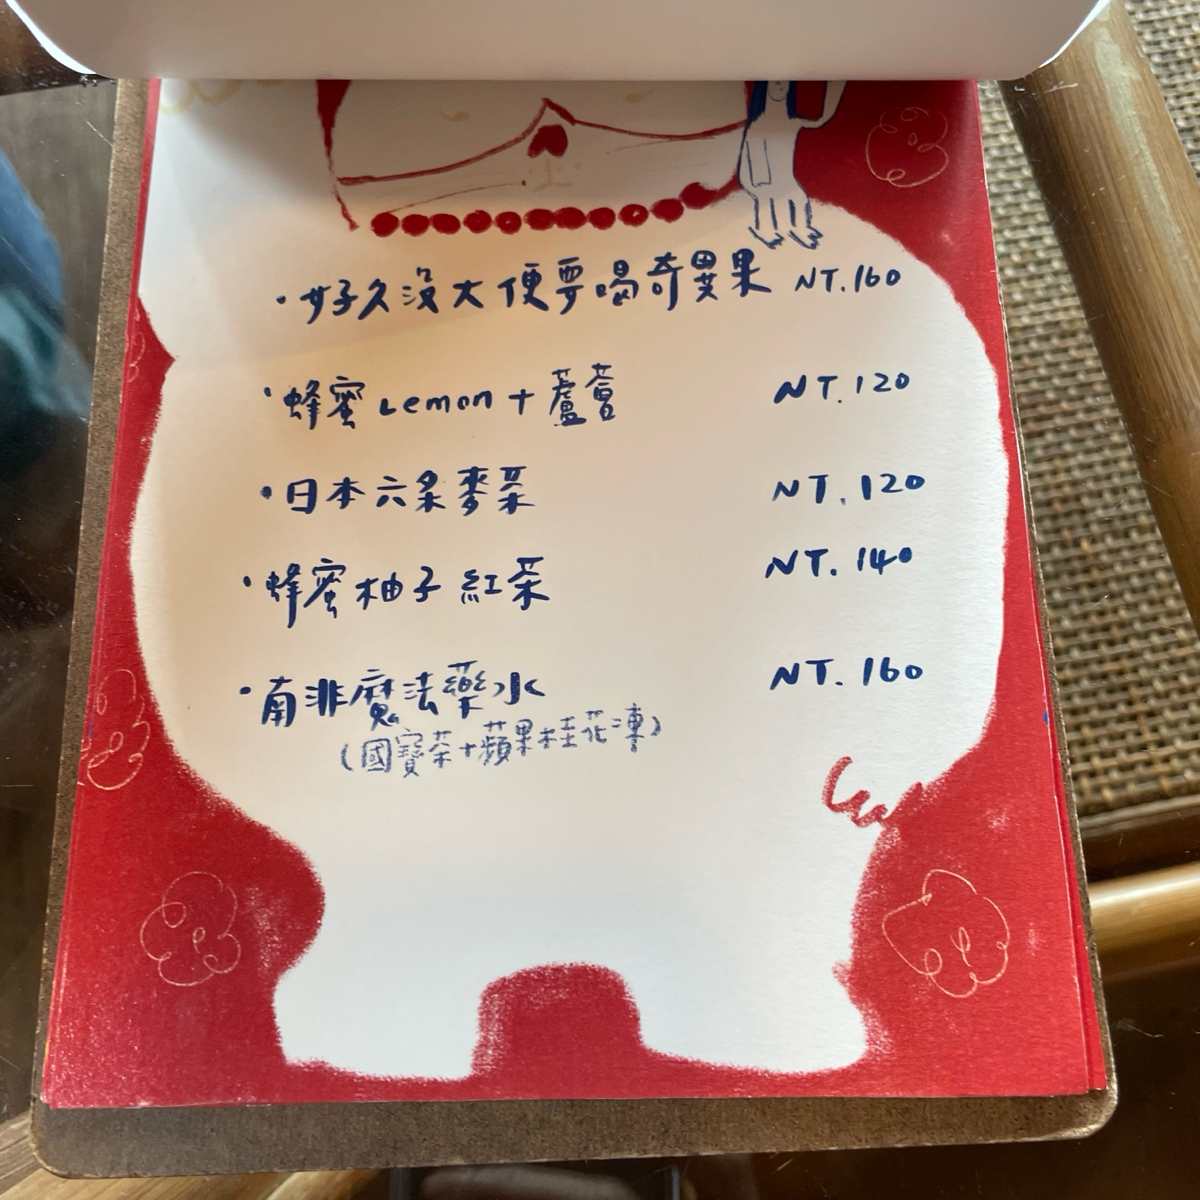 ·好久沒大便要喝奇異果 NT.160
·蜂蜜Lemon+蘆薈 NT.120
·日本六条麥茶 NT.120
·蜂蜜柚子紅茶 NT.140
·南非魔法藥水 NT.160
(國寶茶+蘋果桂花凍)